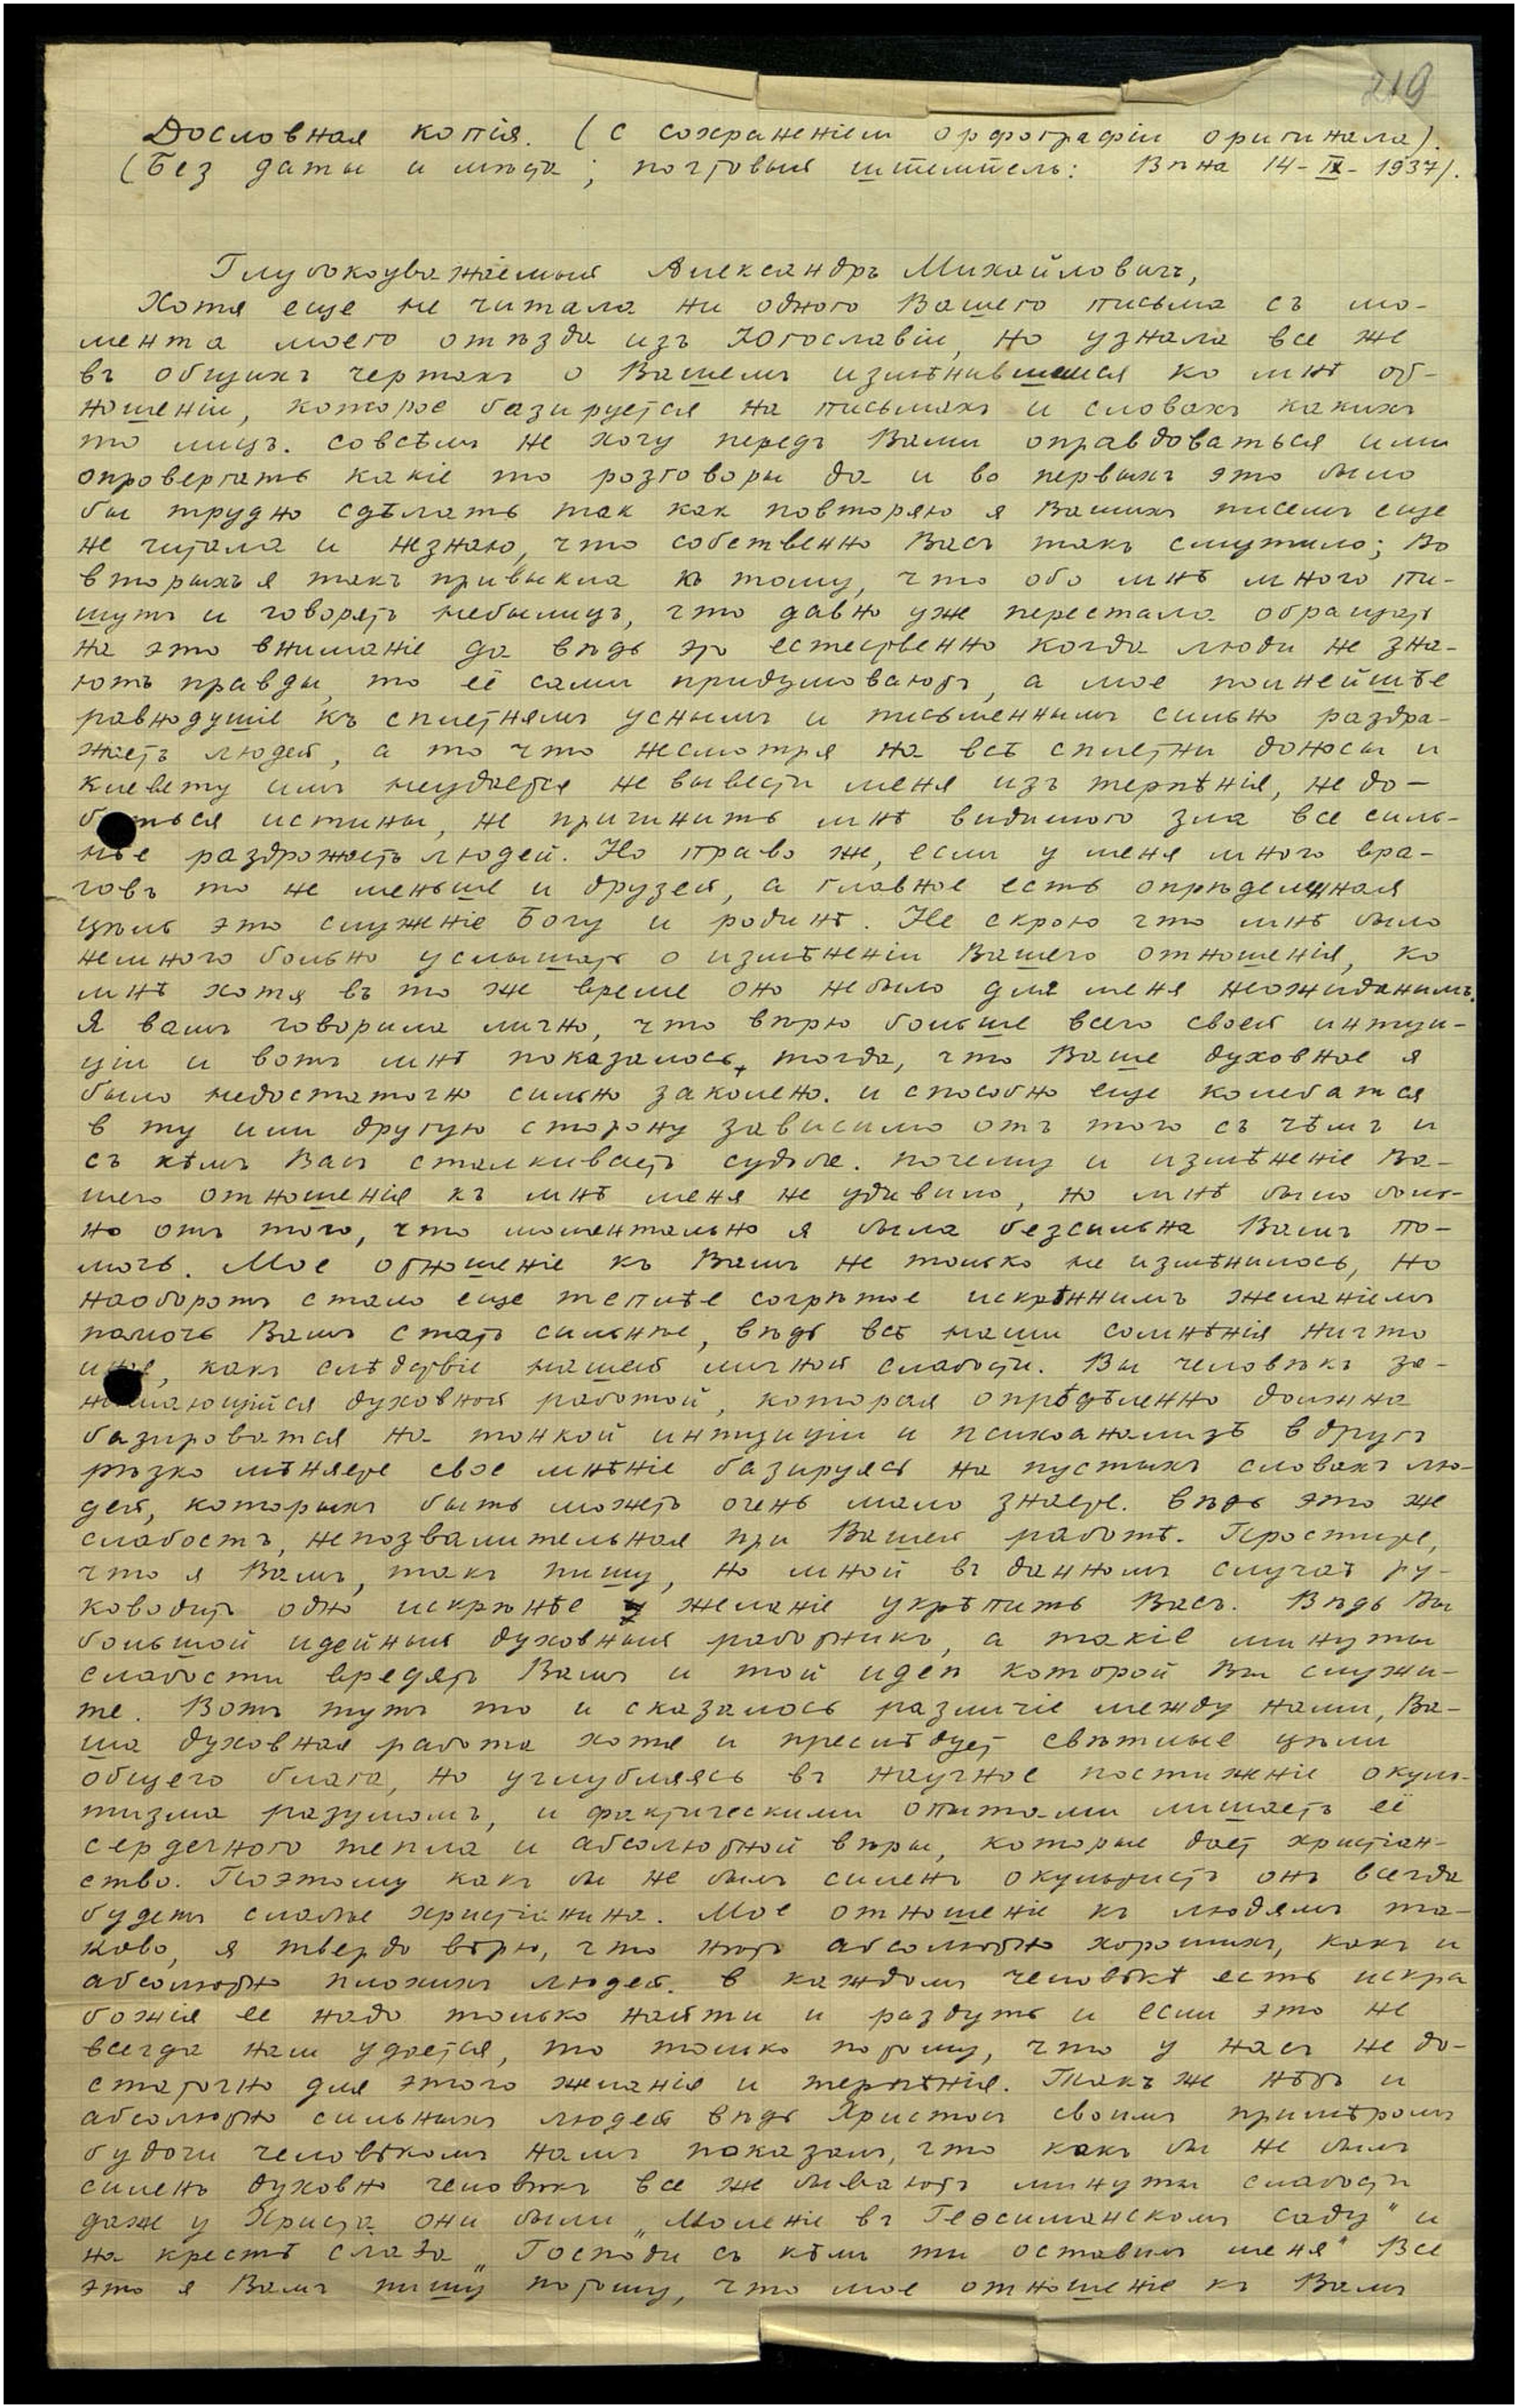 219
Дословная копія. (с сохраненіем орфографіи оригинала).
(Без даты и мѣста; почтовый штемпель: Вѣна 14-IX-1937).
Глубокоуважаемый Александръ Михайловичъ,
Хотя еще не читала ни одного Вашего письма съ мо-
мента моего отъѣзда изъ Югославіи, но узнала все же
въ общихъ чертахъ о Вашемъ измѣнившемся ко мнѣ от-
ношеніи, которое базируется на письмахъ и словахъ какихъ
то лицъ. Совсѣмъ не хочу передъ Вами оправдоваться или
опровергать какіе то розговоры да и во первыхъ это было
бы трудно сдѣлать так как повторяю я Вашихъ писемъ еще
не читала и незнаю, что собственно Васъ такъ смутило; Во
вторыхъ я такъ привыкла къ тому, что обо мнѣ много пи-
шутъ и говорятъ небылицъ, что давно уже перестала обращать
на это вниманіе да вѣдь это естественно когда люди не зна-
ютъ правды, то её сами придумоваютъ, а мое полнейшѣе
равнодушіе къ сплетнямъ уснымъ и письменнымъ сильно раздра-
жаетъ людей, а то что несмотря на всѣ сплетни доносы и
клевету имъ неудается не вывести меня изъ терпѣнія, не до-
биться истины, не причинить мнѣ видимого зла все силь-
нѣе раздрожаетъ людей. Но право же, если у меня много вра-
говъ то не меньше и друзей, а главное есть опрѣделенная
цѣль это служеніе Богу и родинѣ. Не скрою что мнѣ было
немного больно услышать о измѣненіи Вашего отношенія, ко
мнѣ хотя въ то же време оно небыло для меня неожиданнымъ.
Я вамъ говорила лично, что вѣрю больше всего своей интуи-
ціи и вотъ мнѣ показалось, тогда, что Ваше духовное я
было недостаточно сильно заколено. и способно еще колебатся
в ту или другую сторону зависимо отъ того съ чѣмъ и
съ кѣмъ Васъ сталкиваетъ судьба. почему и измѣненіе Ва-
шего отношенія къ мнѣ меня не удивило, но мнѣ было боль-
но отъ того, что моментально я была безсильна Вамъ по-
мочь. Мое отношеніе къ Вамъ не только не измѣнилось, но
наоборотъ стало еще теплѣе согрѣтое искрѣннимъ желаніемъ
помочь Вамъ стать сильнѣе, вѣдь всѣ наши сомнѣнія ничто
иное, какъ слѣдствіе нашей личной слабости. Вы человѣкъ за-
нимающійся духовной работой, которая опрѣдѣленно должна
базироватся на тонкой интуиціи и психоанализѣ вдругъ
рѣзко мѣняете свое мнѣніе базируясь на пустыхъ словахъ лю-
дей, которыхъ быть можетъ очень мало знаете. вѣдь это же
слабость, непозвалительная при Вашей работѣ. Простите,
что я Вамъ, такъ пишу, но мной въ данномъ случаѣ ру-
ководитъ одно искрѣнѣе желаніе укрѣпить Васъ. Вѣдь Вы
большой идейный духовный работникъ, а такіе минуты
слабости вредятъ Вамъ и той идеѣ которой Вы служи-
те. Вотъ тутъ то и сказалось различіе между нами, Ва-
ша духовная работа хотя и преслѣдует свѣтлые цѣли
общего блага, но углубляясь въ научное постиженіе окуль-
тизма разумомъ, и фактическими опытами лишаетъ её
сердечного тепла и абсолютной вѣры, которые даетъ христіан-
ство. Поэтому какъ бы не былъ силенъ окультистъ онъ всегда
будетъ слабѣе христіанина. Мое отношеніе къ людямъ та-
ково, я твердо вѣрю, что нѣтъ абсолютно хорошихъ, какъ и
абсолютно плохихъ людей. в каждомъ человѣкѣ есть искра
божія ее надо только найти и раздуть и если это не
всегда нам удается, то только потому, что у насъ не до-
статочно для этого желанія и терпѣнія. Также нѣтъ и
абсолютно сильныхъ людей вѣдь Христосъ своимъ примѣромъ
будочи человѣкомъ намъ показалъ, что какъ бы не былъ
силенъ духовно человѣкъ все же бываютъ минуты слабости
даже у Христа они были „Моленіе въ Геѳсиманскомъ саду" и
на крестѣ слова „Господи съ кѣмъ ты оставилъ меня" Все
это я Вамъ пишу потому, что мое отношеніе къ Вамъ